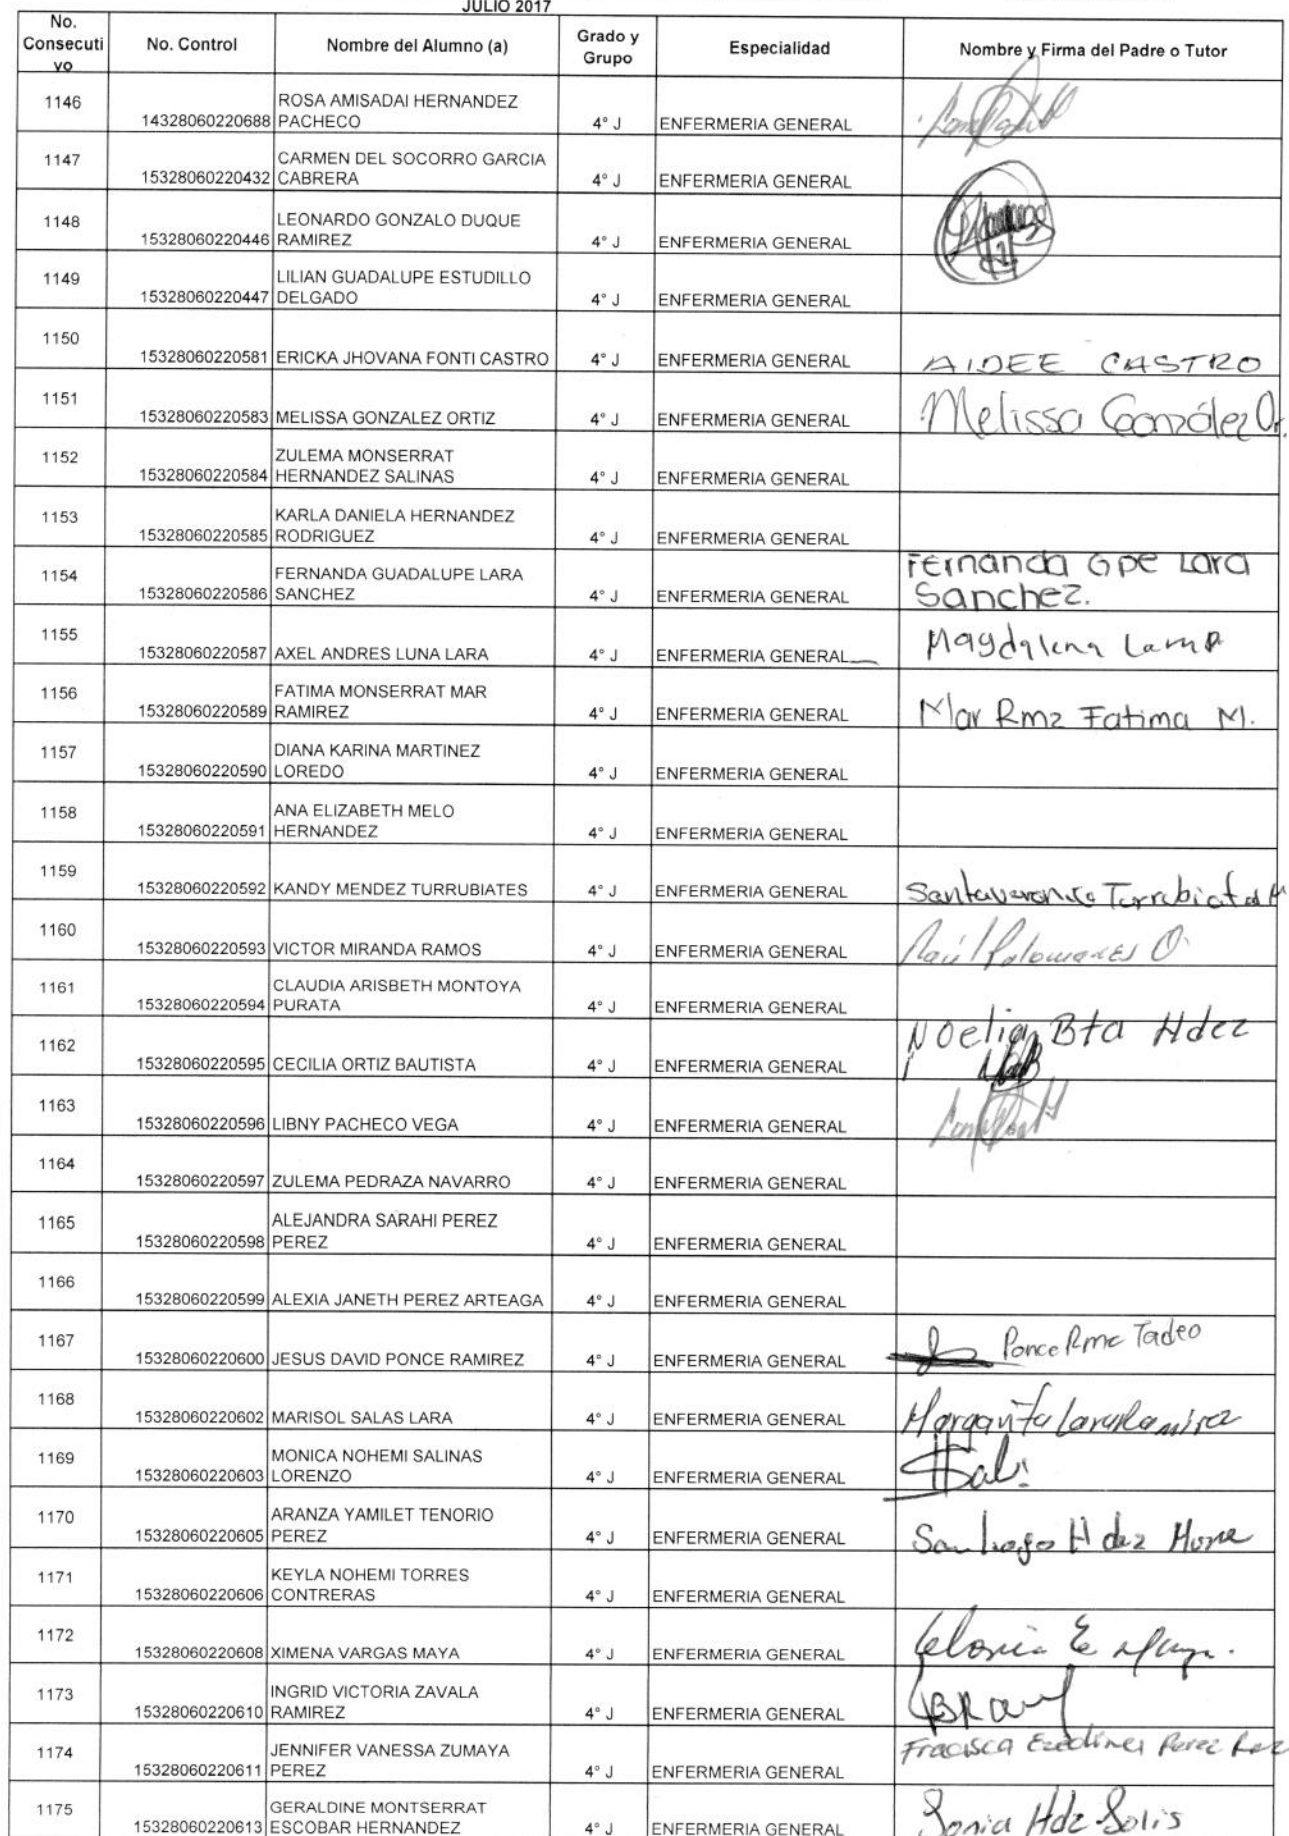 JULIO 2017
No. Consecutivo No. Control Nombre del Alumno (a) Grado y Grupo Especialidad Nombre y Firma del Padre o Tutor
1146 14328060220688 ROSA AMISADAI HERNANDEZ PACHECO 4° J ENFERMERIA GENERAL
1147 15328060220432 CARMEN DEL SOCORRO GARCIA CABRERA 4° J ENFERMERIA GENERAL
1148 15328060220446 LEONARDO GONZALO DUQUE RAMIREZ 4° J ENFERMERIA GENERAL
1149 15328060220447 LILIAN GUADALUPE ESTUDILLO DELGADO 4° J ENFERMERIA GENERAL
1150 15328060220581 ERICKA JHOVANA FONTI CASTRO 4° J ENFERMERIA GENERAL AIDEE CASTRO
1151 15328060220583 MELISSA GONZALEZ ORTIZ 4° J ENFERMERIA GENERAL Melissa González Or.
1152 15328060220584 ZULEMA MONSERRAT HERNANDEZ SALINAS 4° J ENFERMERIA GENERAL
1153 15328060220585 KARLA DANIELA HERNANDEZ RODRIGUEZ 4° J ENFERMERIA GENERAL
1154 15328060220586 FERNANDA GUADALUPE LARA SANCHEZ 4° J ENFERMERIA GENERAL Fernanda Gpe Lara Sanchez.
1155 15328060220587 AXEL ANDRES LUNA LARA 4° J ENFERMERIA GENERAL Magdalena
1156 15328060220589 FATIMA MONSERRAT MAR RAMIREZ 4° J ENFERMERIA GENERAL Mar Rmz Fatima M.
1157 15328060220590 DIANA KARINA MARTINEZ LOREDO 4° J ENFERMERIA GENERAL
1158 15328060220591 ANA ELIZABETH MELO HERNANDEZ 4° J ENFERMERIA GENERAL
1159 15328060220592 KANDY MENDEZ TURRUBIATES 4° J ENFERMERIA GENERAL
1160 15328060220593 VICTOR MIRANDA RAMOS 4° J ENFERMERIA GENERAL Raúl Palomares O.
1161 15328060220594 CLAUDIA ARISBETH MONTOYA PURATA 4° J ENFERMERIA GENERAL
1162 15328060220595 CECILIA ORTIZ BAUTISTA 4° J ENFERMERIA GENERAL Noelia Bta Hdez
1163 15328060220596 LIBNY PACHECO VEGA 4° J ENFERMERIA GENERAL
1164 15328060220597 ZULEMA PEDRAZA NAVARRO 4° J ENFERMERIA GENERAL
1165 15328060220598 ALEJANDRA SARAHI PEREZ PEREZ 4° J ENFERMERIA GENERAL
1166 15328060220599 ALEXIA JANETH PEREZ ARTEAGA 4° J ENFERMERIA GENERAL
1167 15328060220600 JESUS DAVID PONCE RAMIREZ 4° J ENFERMERIA GENERAL Ponce Tadeo
1168 15328060220602 MARISOL SALAS LARA 4° J ENFERMERIA GENERAL Margarita Lara Ramirez
1169 15328060220603 MONICA NOHEMI SALINAS LORENZO 4° J ENFERMERIA GENERAL
1170 15328060220605 ARANZA YAMILET TENORIO PEREZ 4° J ENFERMERIA GENERAL Santiago Hdez
1171 15328060220606 KEYLA NOHEMI TORRES CONTRERAS 4° J ENFERMERIA GENERAL
1172 15328060220608 XIMENA VARGAS MAYA 4° J ENFERMERIA GENERAL Gloria E
1173 15328060220610 INGRID VICTORIA ZAVALA RAMIREZ 4° J ENFERMERIA GENERAL
1174 15328060220611 JENNIFER VANESSA ZUMAYA PEREZ 4° J ENFERMERIA GENERAL Perez
1175 15328060220613 GERALDINE MONTSERRAT ESCOBAR HERNANDEZ 4° J ENFERMERIA GENERAL Sonia Hdz Solis